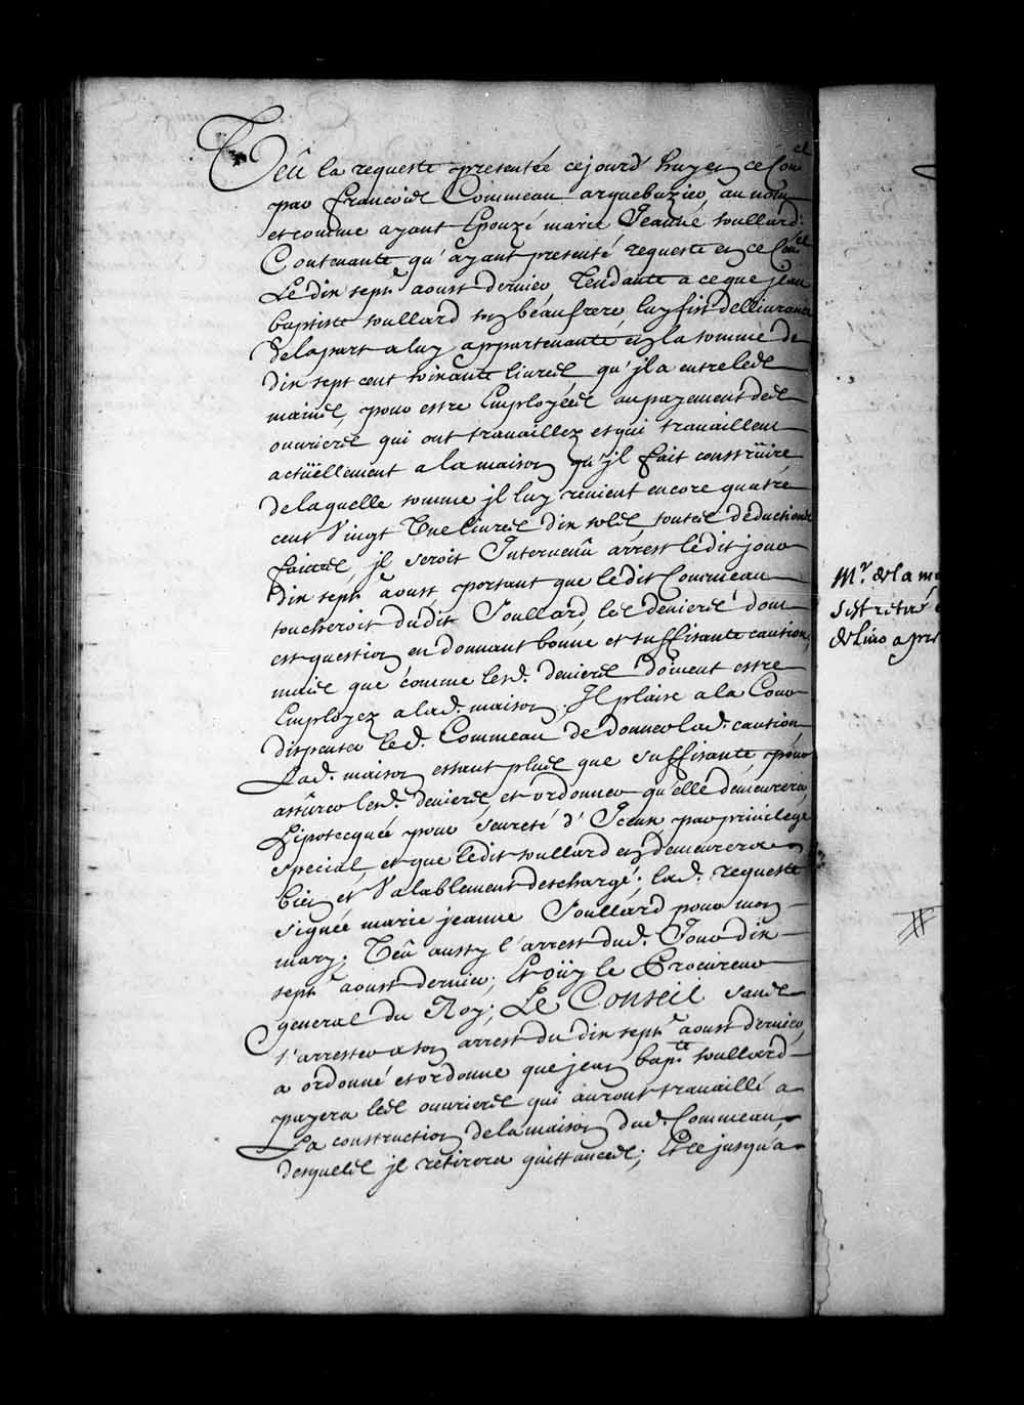 Veû la requeste presentée cejourd'huy en ce Con.el
par francois Commeau arquebuzier, au nom
et comme ayant Epouzé marie Jeanne soullard.
Contenante qu'ayant presenté requeste en ce Con.el
Le dix sept.e aoust dernier Tendante a ce que Jean
baptiste soullard son beaufrere luy fist dellivrance
de la part a luy appartenante en la somme de
dix sept cent soixante livres qu'jl a entre les
mains, pour estre Employées au payement des
ouvriers qui ont travaillez et qui travaillent
actüellement a la maison qu'jl fait constrüire
de laquelle somme jl luy revient encore quatre
cent Vingt Une livres dix sols toutes deductions
faites, jl seroit Intervenû arrest ledit jour
dix sept.e aoust portant que ledit Commeau
toucheroit dudit Soullard, les deniers dont
est question en donnant bonne et suffisante caution,
mais que comme lesd. deniers doivent estre
Employez a lad. maison. Il plaise a la Cour
dispenser led. Commeau de donner lad. caution,
Lad. maison estant plus que suffisante pour
assûrer lesd. deniers, et ordonner qu'elle demeurera
hipotecquée pour seureté d'Iceux, par privilege
special, et que ledit soullard en demeurera
bien et Valablement deschargé; lad. requeste
signée marie jeanne Soullard pour mon
mary; Veû aussy l'arrest dud. Jour dix
sept.e aoust dernier; Et oüy le Procureur
general du Roy; Le Conseil sans
s'arrester a son arrest du dix sept.e aoust dernier,
a ordonné et ordonne que jean bap.te soullard
payera les ouvriers qui auront travaillé a
La construction de la maison dud. Commeau,
desquels jl retirera quittances; Et ce jusqu'a
M.r de la m
s'est retiré
de Lino a pre